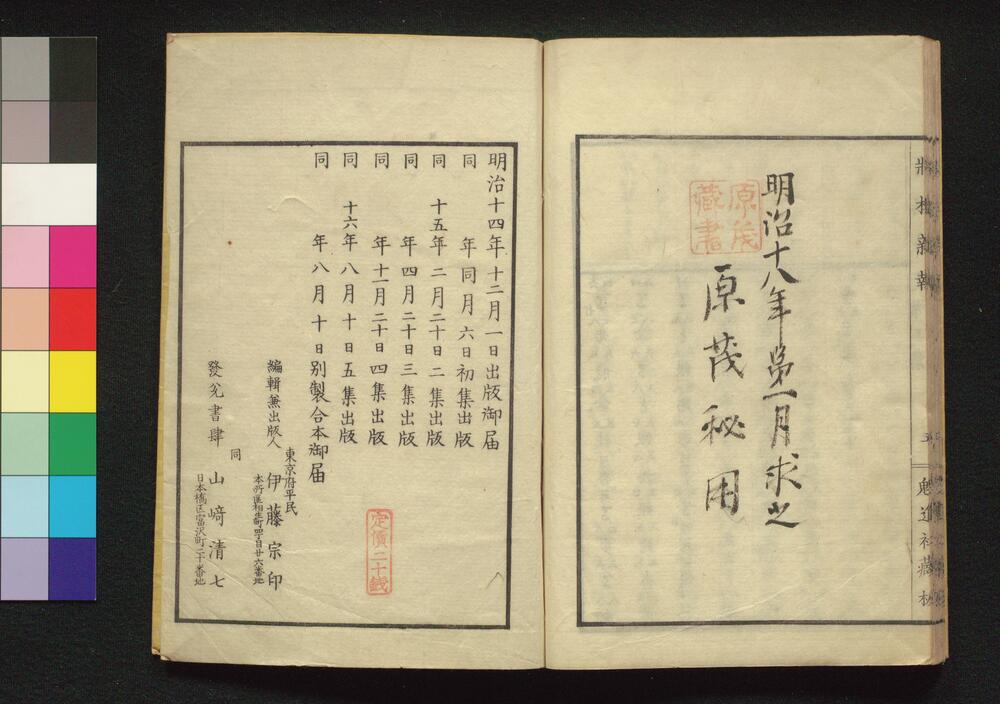 明治十八年第一月求之
原茂秘用
原茂
藏書
明治十四年十二月一日出版御届
同　年同月六日初集出版
同　十五年二月二十日二集出版
同　年四月二十日三集出版
同　年十一月二十日四集出版
同　十六年八月十日五集出版
同　年八月十日別製合本御届
定價二十銭
東京府平民
編輯兼出版人　伊藤宗印
本所區相生町四丁目廿六番地
同
發兌書肆　山﨑清七
日本橋区富沢町二十番地